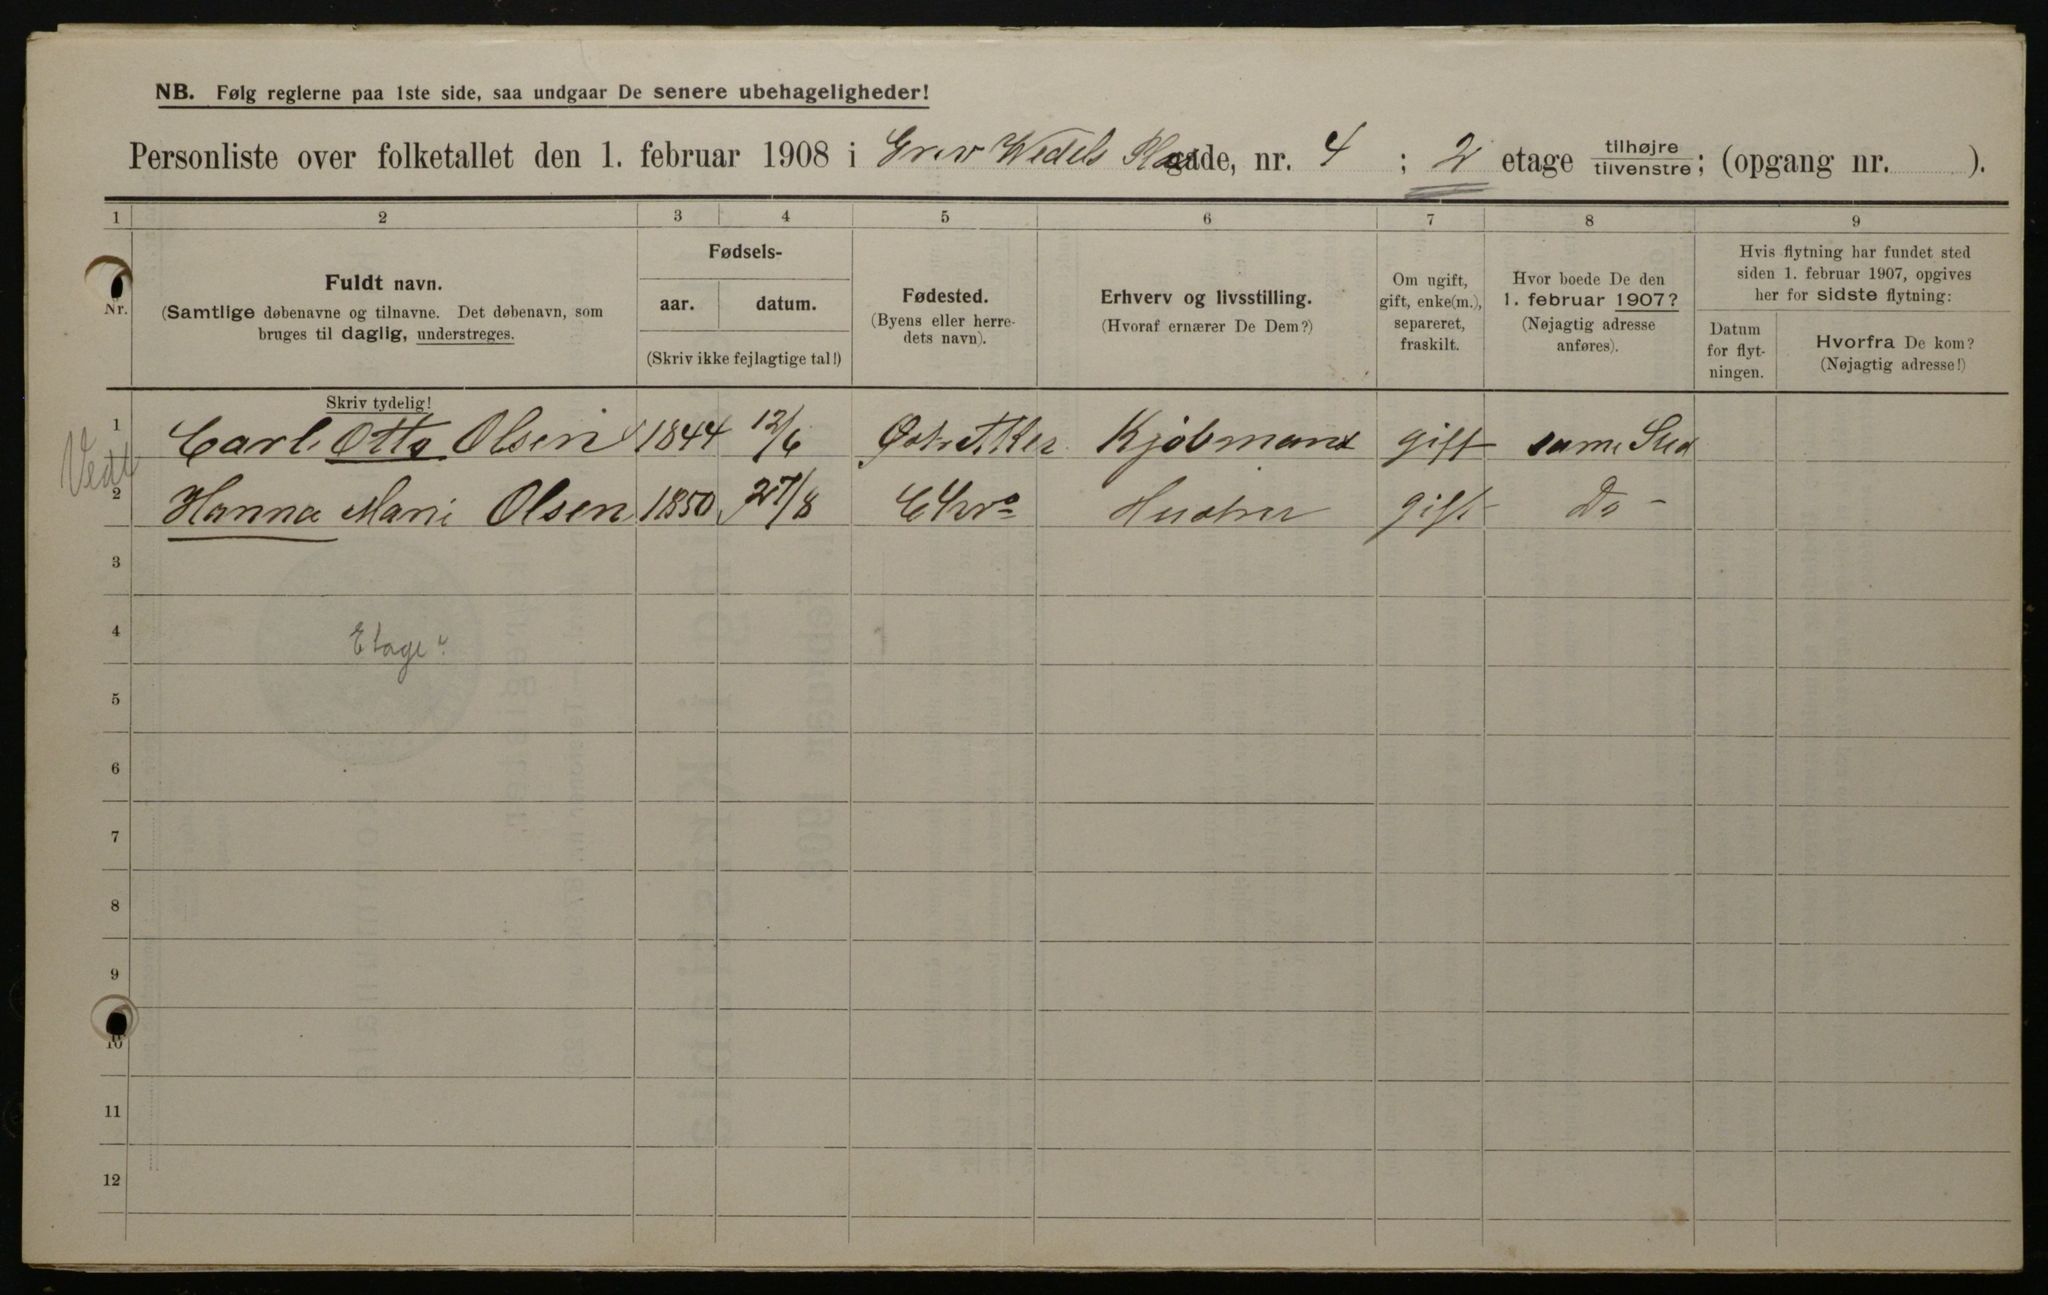 NB. Følg reglerne paa 1ste side, saa undgaar De senere ubehageligheder!
Personliste over folketallet den 1. februar 1908 i Grev Wedels Plads gade, nr. 4 ; 2 etage tilhøjre/tilvenstre; (opgang nr. ).
1 2 3 4 5 6 7 8 9
Nr.
Fuldt navn.
(Samtlige døbenavne og tilnavne. Det døbenavn, som
bruges til daglig, understreges.
Skriv tydelig!
Fødsels-
aar. datum.
(Skriv ikke fejlagtige tal!)
Fødested.
(Byens eller herre-
dets navn).
Erhverv og livsstilling.
(Hvoraf ernærer De Dem?)
Om ugift,
gift, enke(m.),
separeret,
fraskilt.
Hvor boede De den
1. februar 1907?
(Nøjagtig adresse
anføres).
Hvis flytning har fundet sted
siden 1. februar 1907, opgives
her for sidste flytning:
Datum
for flyt-
ningen.
Hvorfra De kom?
(Nøjagtig adresse!)
1 Carl Otto Olsen 1844 12/6 Østre Aker Kjøbmand gift samme Sted
2 Hanna Marie Olsen 1850 27/8 Chra Hustru gift Do -
3
4 Etage?
5
6
7
8
9
10
11
12